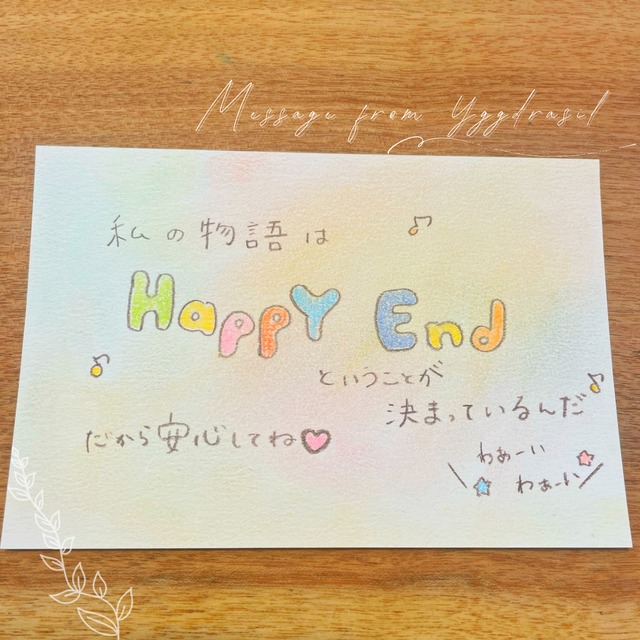 Message from Yggdrasil
私の物語は
Happy End
ということが
決まっているんだ
だから安心してね
わぁーい
わぁーい